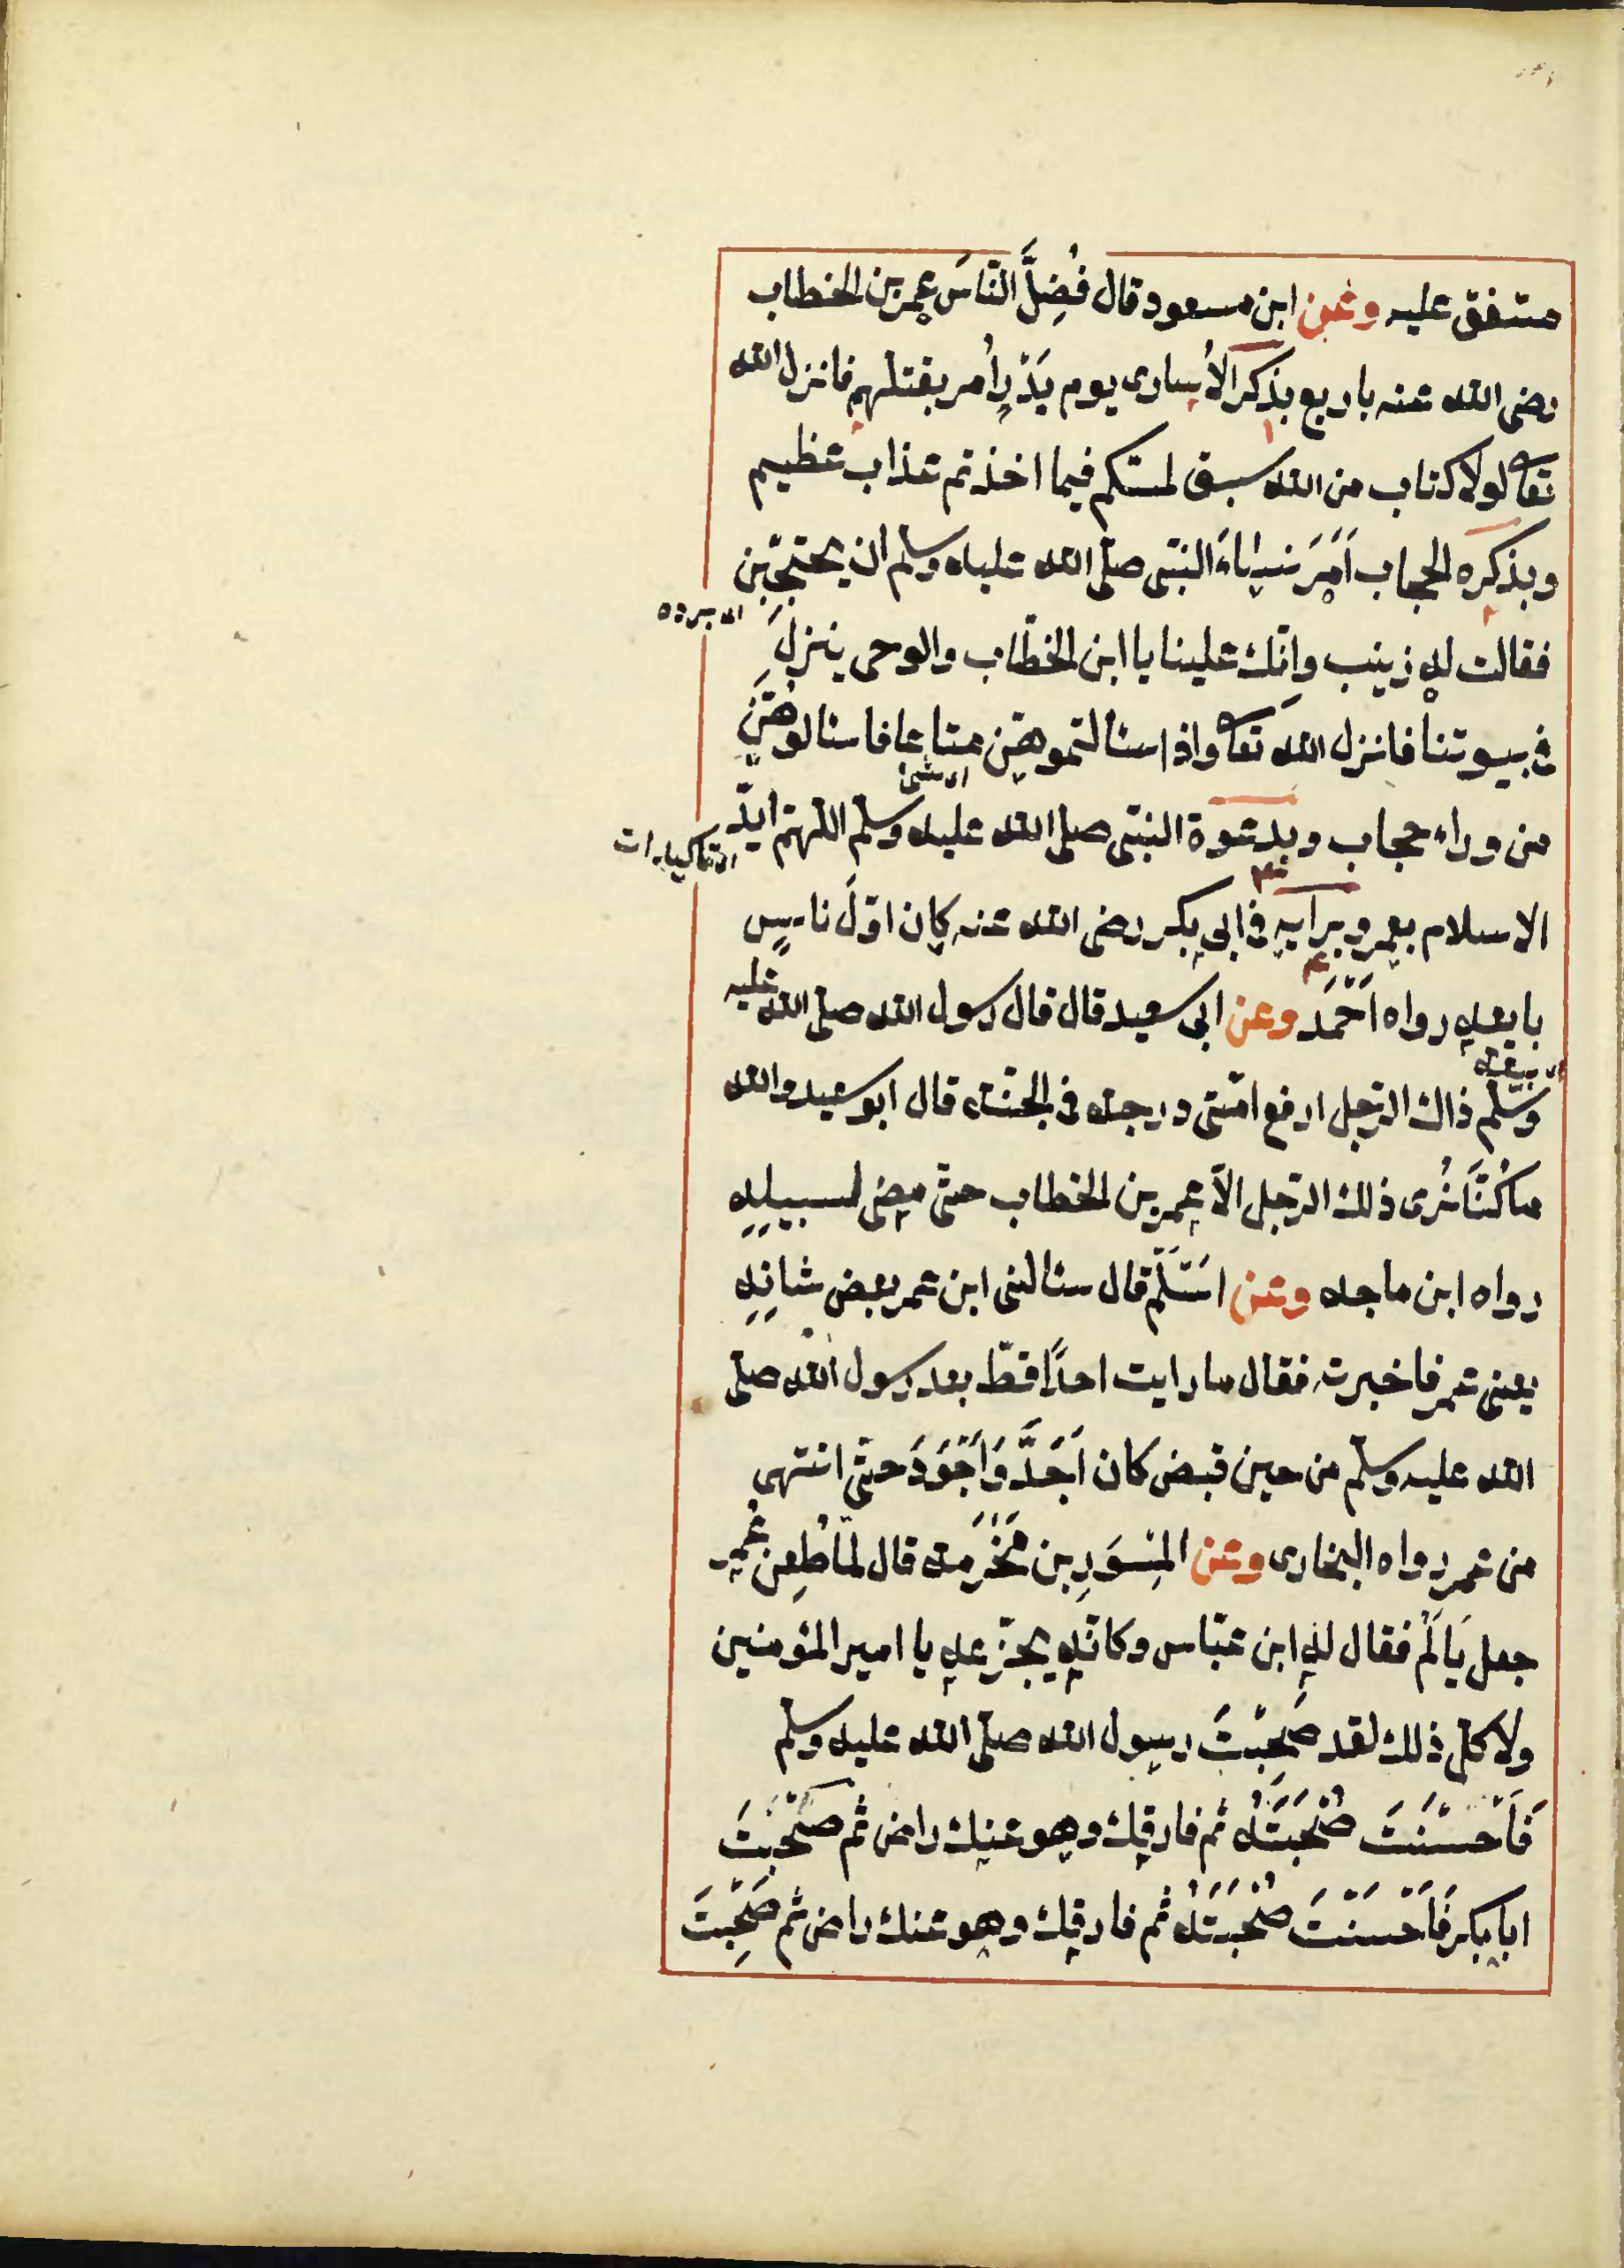 متفق عليه وعن ابن مسعود قال فُضِلَّ النّاسَ عمر بن الخطاب
رضى الله عنه باربع بذكر الأسارى يوم بَدْرٍ أمر بقتلهم فانزل الله
تعا لولا كتاب من الله سبق لمسكم فيما اخذتم عذاب عظيم
وبذكره الحجاب اَمَرَ نساءَ النبّى صلى الله عليه وسلم ان يحتجبن
فقالت له زينب وانّك علينا يا ابن الخطّاب والوحى ينزل
فى بيوتنا فانزل الله تعا واذا سئالتموهنّ متاعا فاسئالوهُنّ
اى شئ
من وراء حجاب وبدعوة النبّى صلى الله عليه وسلم اللهمّ ايدّ
الاسلام بعمر وبرأيه فى ابى بكر رضى الله عنه كان اوّلَ ناسٍ
بايعه رواه اَحْمَد وعن ابى سعيد قال قال رسول الله صلى الله عليه
وسلم ذاك الرّجل ارفع امّتى درجة فى الجنّة قال ابو سعيد والله
ما كُنَّا نُرى ذلك الرّجل الاّ عمر بن الخطاب حتّى مضى لسبيله
رواه ابن ماجه وعن اَسْلَم قال سئالنى ابن عمر بعض شانِه
يعنى عمر فاخبرته فقال ما رايت احدًا قطّ بعد رسول الله صلى
الله عليه وسلم من حين قبض كان اَجَدَّ وَاَجْوَدَ حتّى انتهى
من عمر رواه البخارى وعن المِسْوَرِ بن مَخْرَمة قال لمّا طُعِن عُمر
جعل يَالَمْ فقال له ابن عبّاس وكانّه يجزّعه يا امير المؤمنين
ولا كلّ ذلك لقد صَحِبْتَ رسول الله صلّى الله عليه وسلم
فَاَحْسَنْتَ صُحْبَتَهُ ثم فارقك وهو عنك راض ثم صَحِبْتَ
ابا بكر فَاَحْسَنْتَ صُحْبَتَهُ ثم فارقك وهو عنك راض ثم صَحِبْتَ